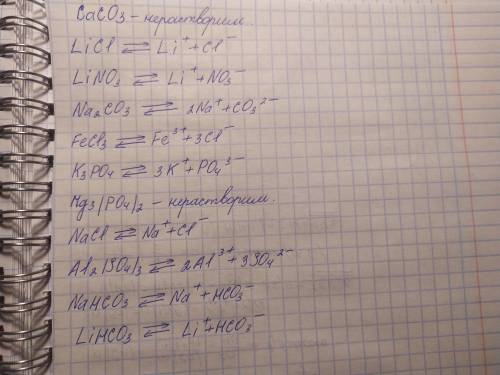 CaCO3 - нерастворим.
LiCl ⇄ Li⁺ + Cl⁻
LiNO3 ⇄ Li⁺ + NO3⁻
Na2CO3 ⇄ 2Na⁺ + CO3²⁻
FeCl3 ⇄ Fe³⁺ + 3Cl⁻
K3PO4 ⇄ 3K⁺ + PO4³⁻
Mg3(PO4)2 - нерастворим.
NaCl ⇄ Na⁺ + Cl⁻
Al2(SO4)3 ⇄ 2Al³⁺ + 3SO4²⁻
NaHCO3 ⇄ Na⁺ + HCO3⁻
LiHCO3 ⇄ Li⁺ + HCO3⁻